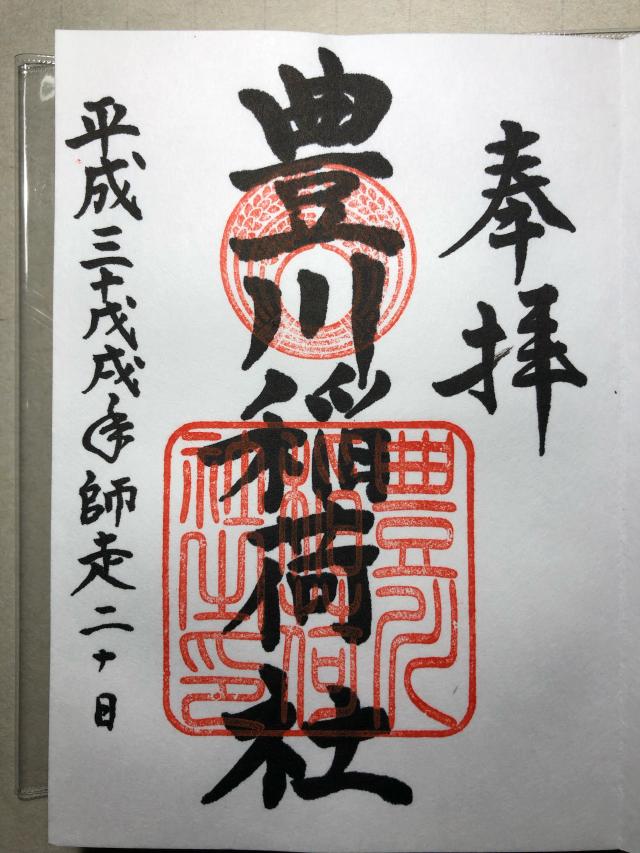 奉拝
豊川稲荷社
豊川
稲荷
社之印
平成三十戊戌年師走二十日